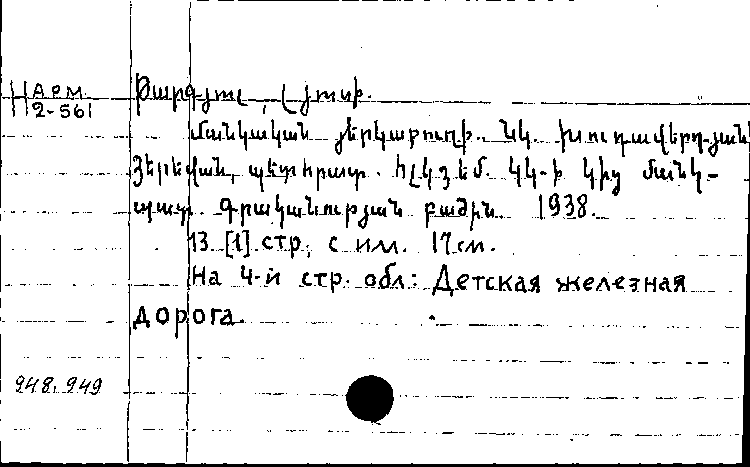 Н АРМ.
2-561
Մանկական յերկաթուղի. Նկ. Խուդավերդյանի
Յերեվան, պետհրատ. ՀԼԿՅԵՄ. ԿԿ-ի կից մանկ-
պատ. գրականության բաժին. 1938.
13 [1] стр, с илл. 17см.
На 4-й стр. обл: Детская железная
дорога.
948.949